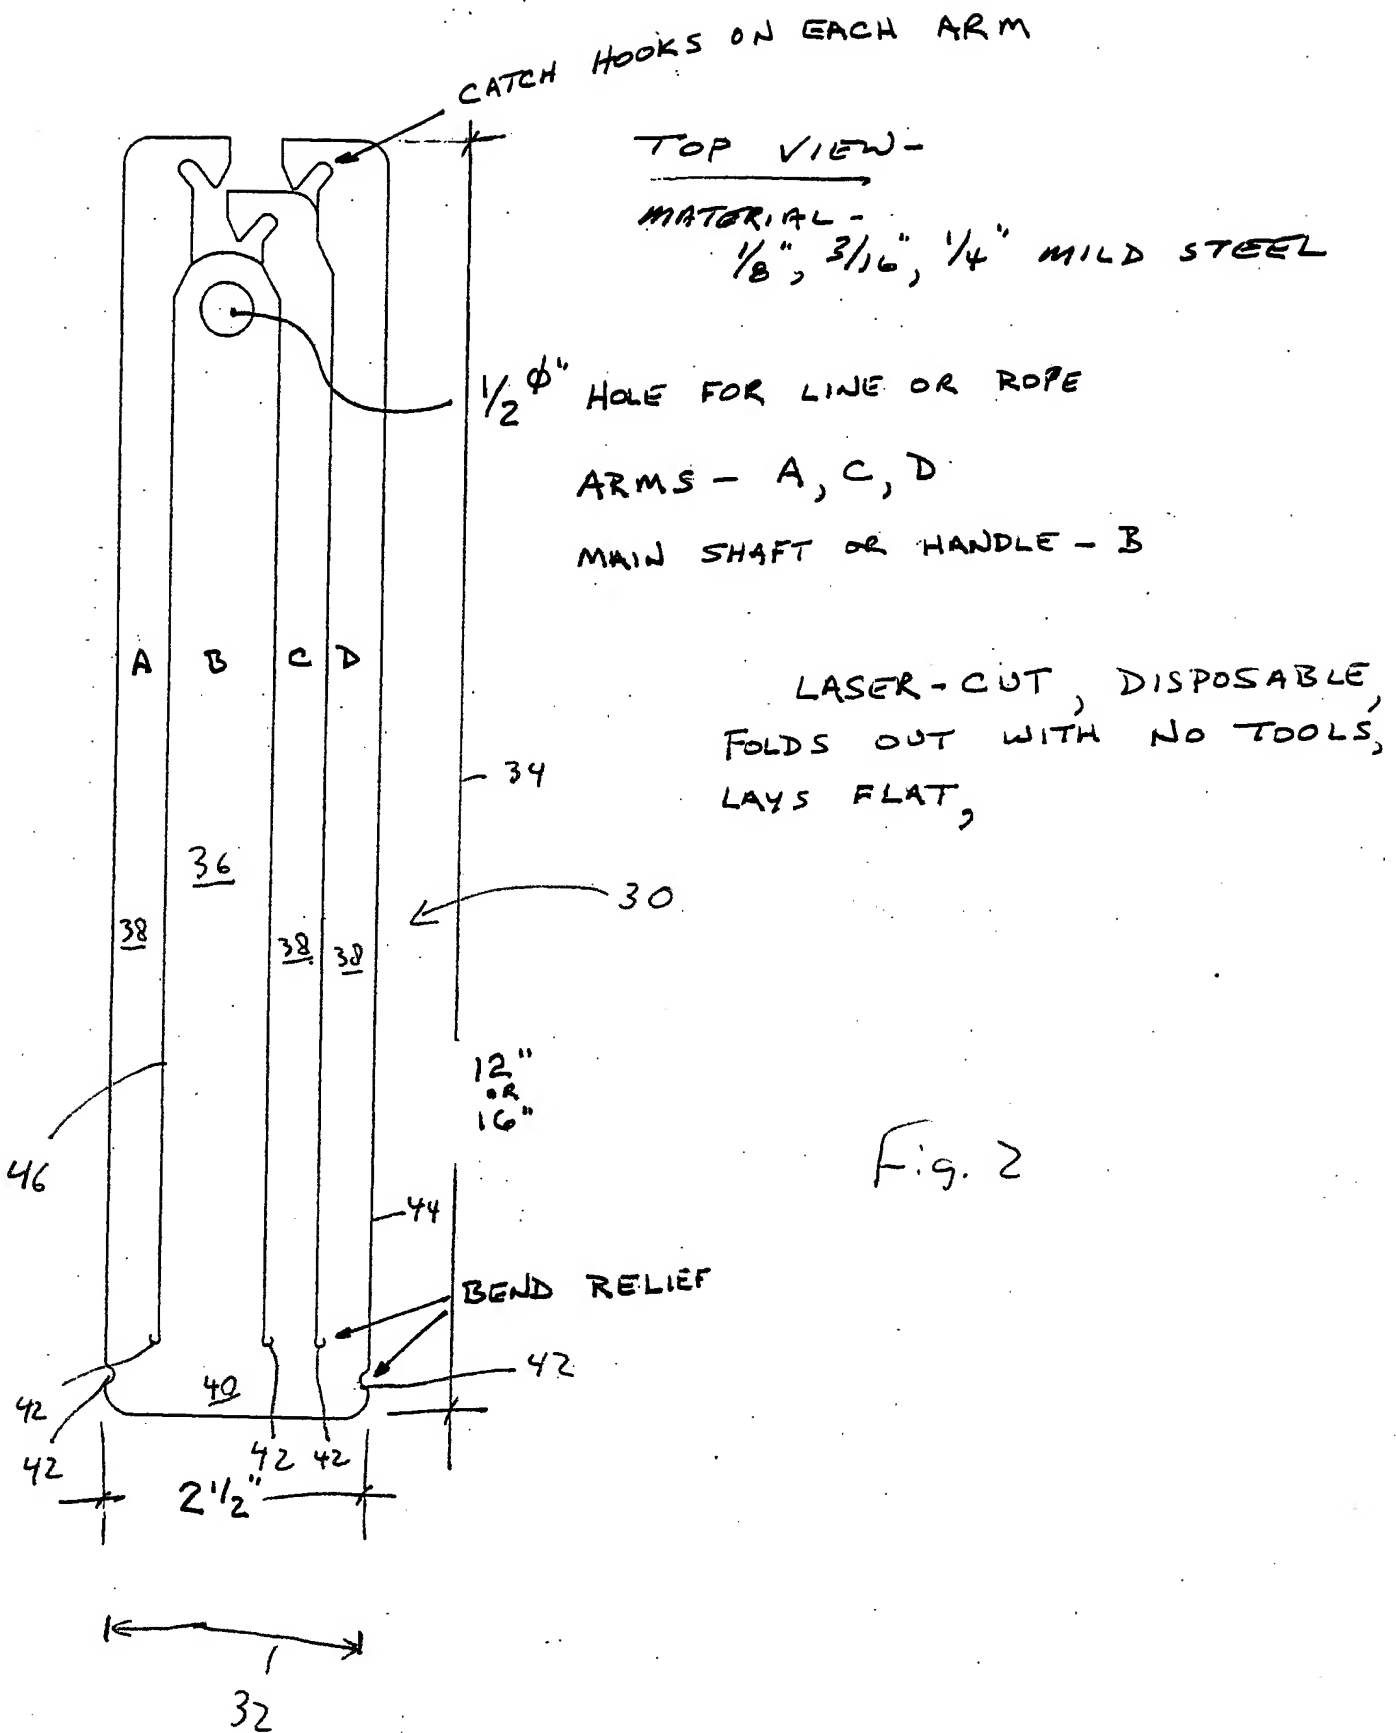 CATCH HOOKS ON EACH ARM
TOP VIEW-
MATERIAL-
1/8", 3/16", 1/4" MILD STEEL
1/2 φ" HOLE FOR LINE OR ROPE
ARMS - A, C, D
MAIN SHAFT OR HANDLE - B
A B C D
LASER-CUT, DISPOSABLE,
FOLDS OUT WITH NO TOOLS,
LAYS FLAT,
34
36
30
38 38 38
12"
OR
16"
46
Fig. 2
44
BEND RELIEF
42
40
42
42
42 42
2 1/2"
32